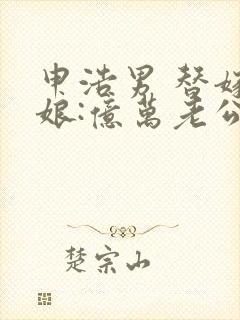 申浩男 替嫁
娘:億萬老公
楚宗山